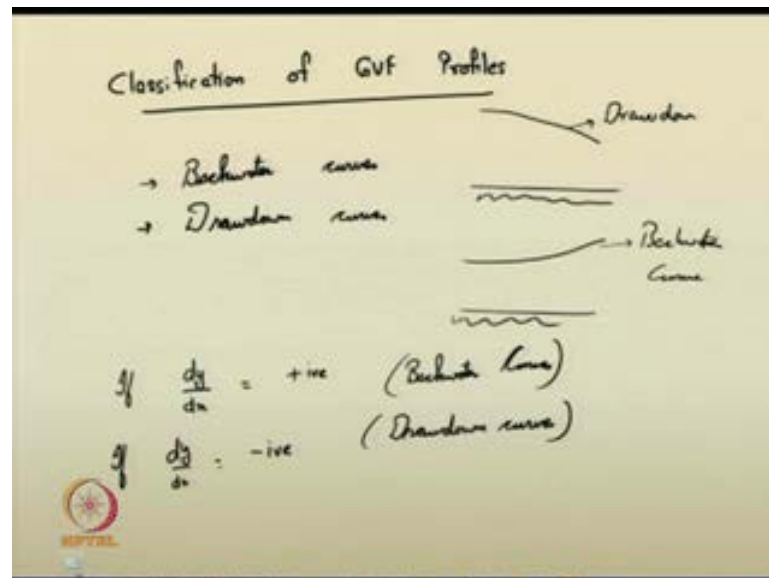 Classification of GVF Profiles
→ Drawdown
→ Backwater curves
→ Drawdown curves
→ Backwater
Curve
If dy/dx = +ive (Backwater Curve)
If dy/dx = -ive (Drawdown curve)
NPTEL